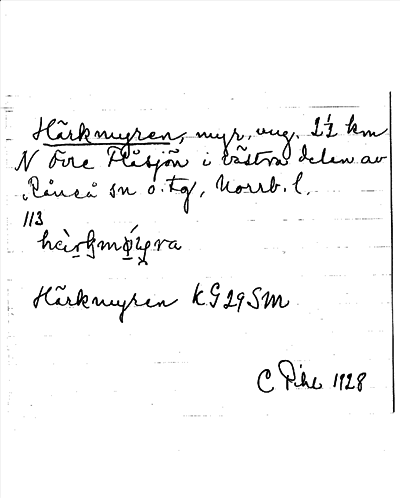 Härkmyren, myr, ung. 2½ km
N om Flåsjön i västra delen av
Råneå sn o. tg, Norrb. l.
113
Härkmyren KG29SM
C Pihl 1928